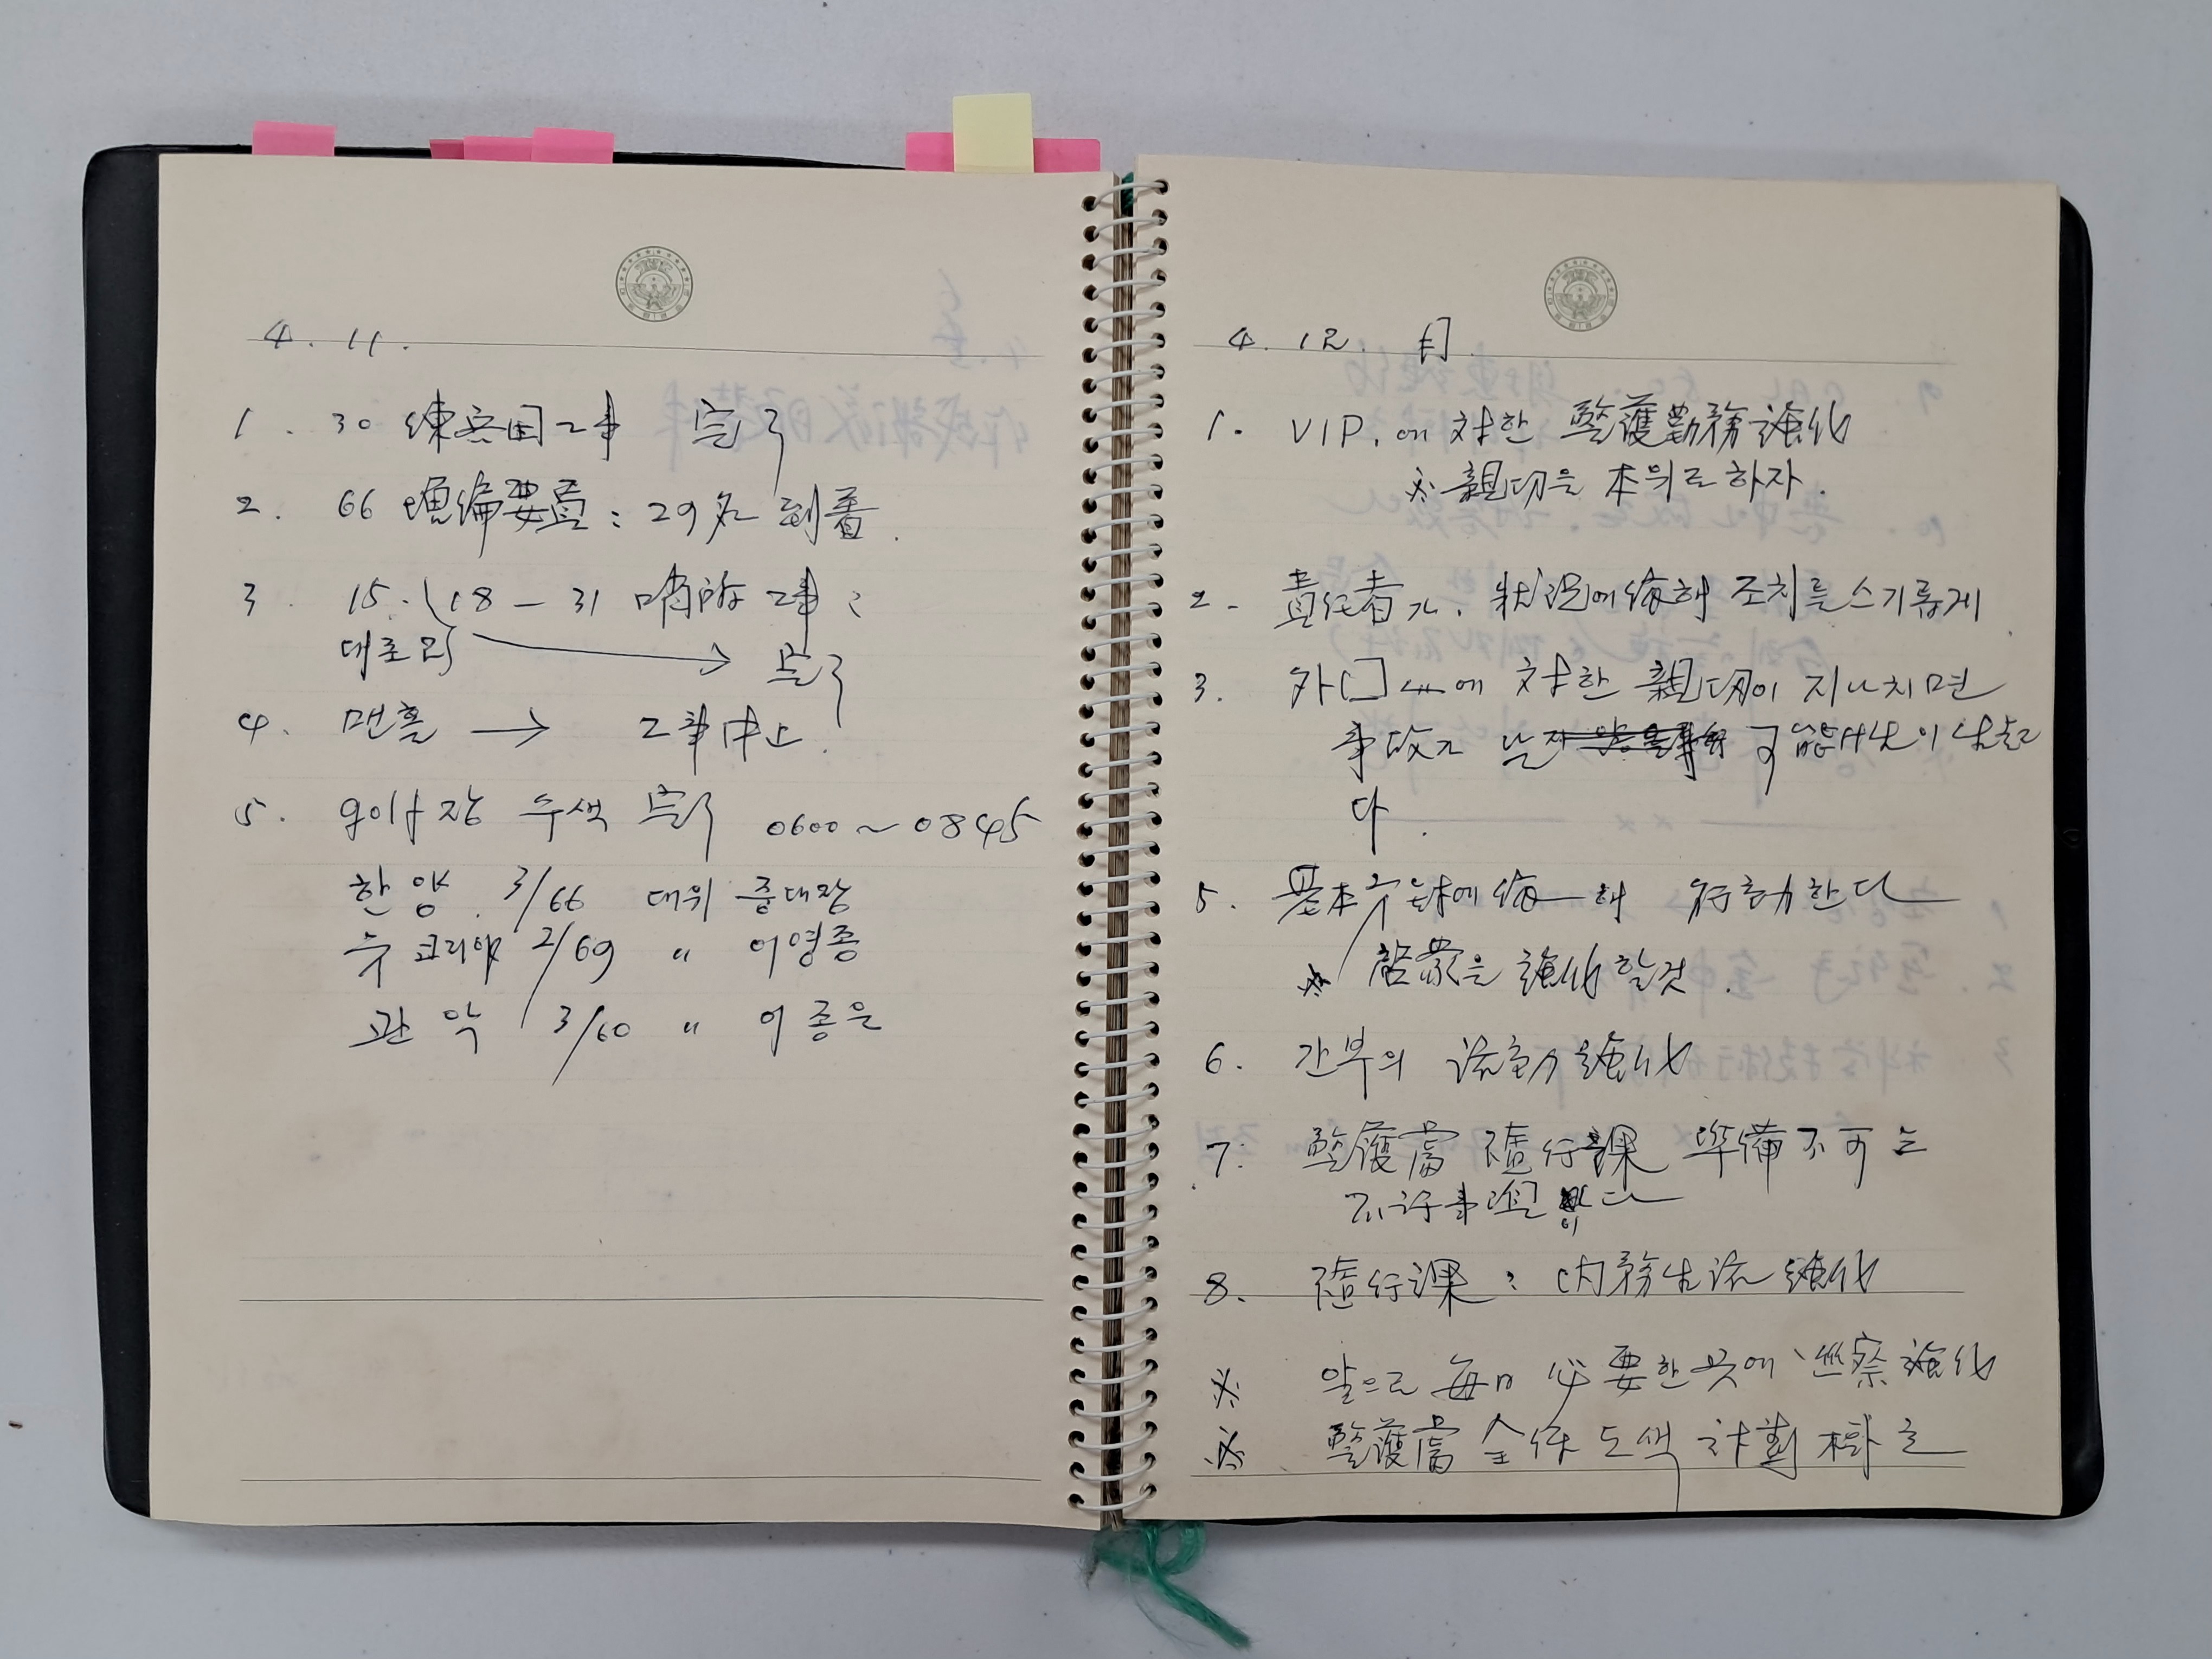 4. 11.
1. 30 練兵囯 工事 完了
2. 66 增編要員 : 29名 到着.
3 15. 18 - 31 哨所 工事 :
대로 完了
4. 맨홀 → 工事中止.
5. golf장 수색 完了 0600~0845
한양. 3/66 대위 중대장
뉴코리아 2/69 〃 이영종
관악 3/60 〃 이종은
4. 12. 月.
1. VIP.에 対한 警護勤務 強化
※ 親切은 本위로 하자.
2. 責任者가. 狀況에 依해 조치를 스기롭게
3. 外 에 対한 親切이 지나치면
事故가 날 可能性이 있
다.
5. 基本 에 依해 行動한다
※ 啓蒙은 強化할것.
6. 간부의 活動 強化
7. 警護室 隨行課 準備不可는
不許事項이다
8. 隨行課 : 内務生活 強化
※ 앞으로 每日 必要한 곳에 巡察 強化
※ 警護室 全体 도색 計劃 樹立